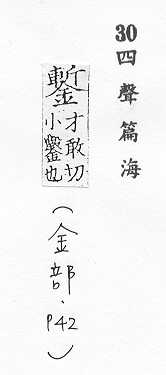 30 四聲篇海
鏨才敢切
小鑿也
(金部、P42)